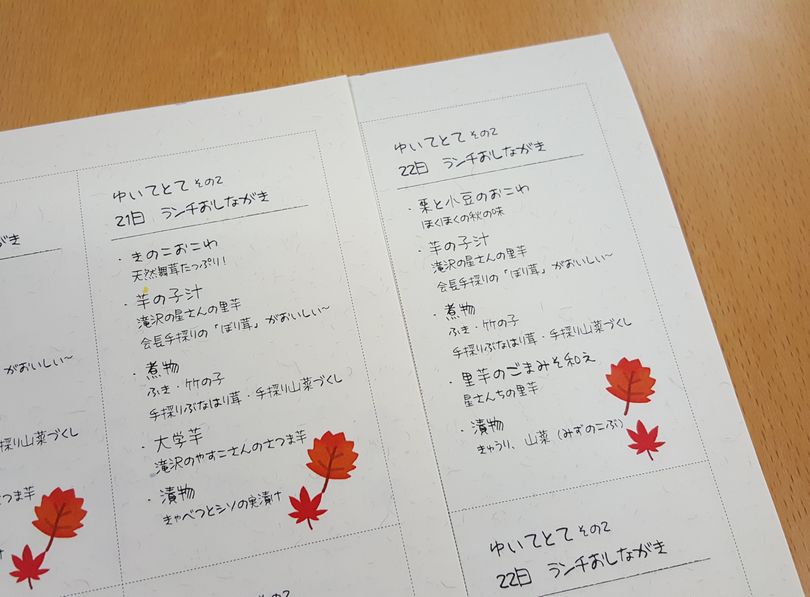 がき
がおいしい〜
採り山菜づくし
つま芋
ゆいてとて その2
21日 ランチおしながき
・きのこおこわ
天然舞茸たっぷり!
・芋の子汁
滝沢の星さんの里芋
会長手採りの「ぼり茸」がおいしい〜
・煮物
ふき・竹の子
手採りぶなはり茸・手採り山菜づくし
・大学芋
滝沢のやすこさんのさつま芋
・漬物
きゃべつとシソの実漬け
その2
ゆいてとて その2
22日 ランチおしながき
・栗と小豆のおこわ
ほくほくの秋の味
・芋の子汁
滝沢の星さんの里芋
会長手採りの「ぼり茸」がおいしい〜
・煮物
ふき・竹の子
手採りぶなはり茸・手採り山菜づくし
・里芋のごまみそ和え
星さんちの里芋
・漬物
きゅうり、山菜(みずのこぶ)
ゆいてとて その2
22日 ランチおしながき